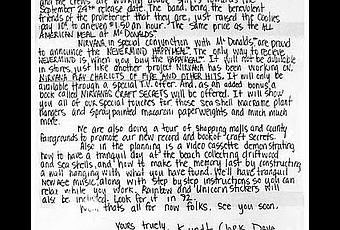 and the crews are working double shifts towards the
September 24th release date. The band being the benevolent
friends of the proleteriet that they are, just raised the coolies
pay 10¢ to an even $1.50 an hour. The same price as the ALL
AMERICAN MEAL at McDONALDS.
NIRVANA in special conjunction with McDonalds, are proud
to announce the NEVERMIND HAPPYMEAL. The only way to recieve
NEVERMIND is when you buy the HAPPYMEAL. It will not be available
in stores, just like another project NIRVANA has been working on.
NIRVANA PLAY CHARIOTS OF FIRE AND OTHER HITS. It will only be
available through a special T.V. offer. And, as an added bonus, a
book called NIRVANA CRAFT SECRETS will be offered. It will show
you all of our special touches for those sea shell macrame plant
hangers and spray painted macaroni paperweights and much much
more.
We are also doing a tour of shopping malls and county
fairgrounds to promote our new record and book of "craft secrets."
Also in the planning is a video cassette demonstrating
how to have a tranquil day at the beach collecting driftwood
and sea shells, and how to make the memory last by constructing
a wall hanging with what you have found. We'll have tranquil
New age music, along with step by step instructions so you can
relax while you work. Rainbow and Unicorn stickers will
also be included. Look for it in '92.
Well, thats all for now folks, see you soon.
yours truely,